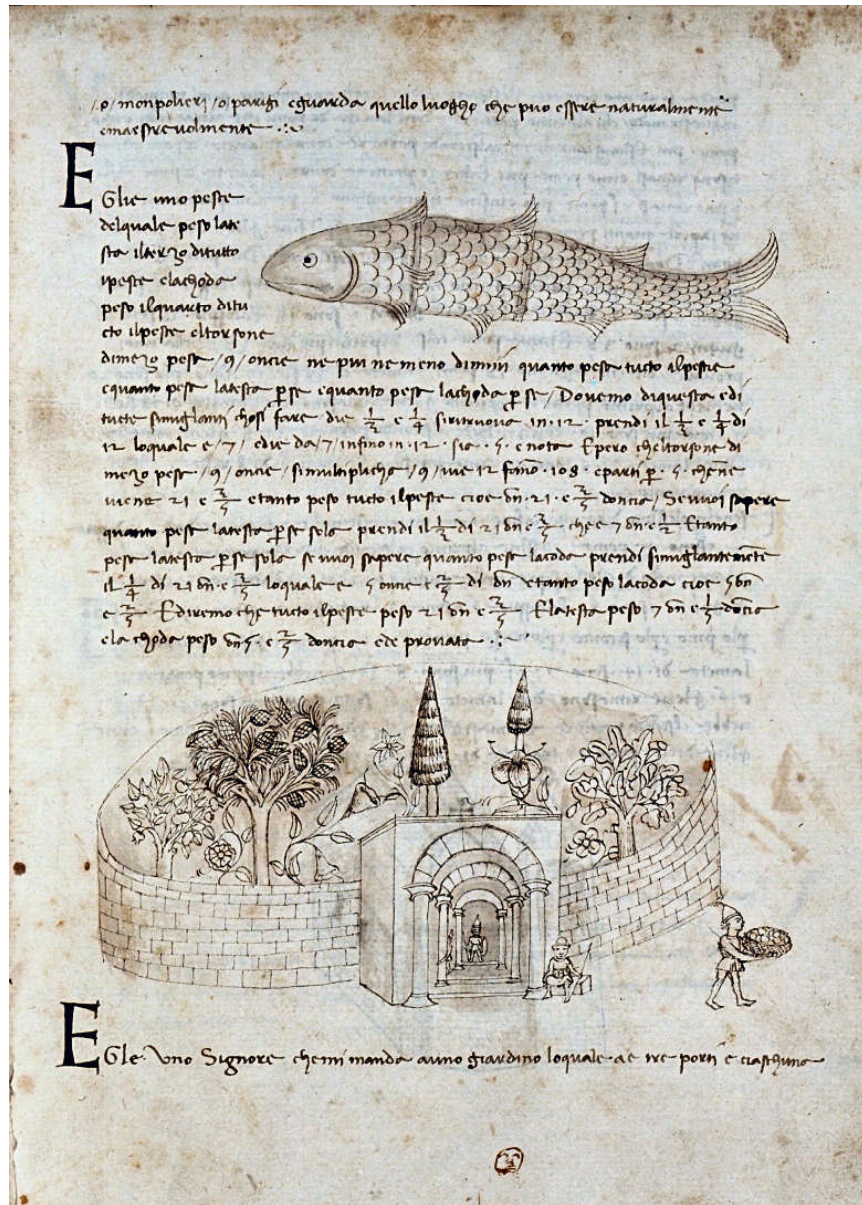 /o/ monpolieri /o/ parigi eguarda quello luogho che puo essere naturalmente
emaestrevolmente
EGlie uno pesce
delquale peso late
sta ilterzo ditutto
ipesce elachoda
peso ilquarto ditu
cto ilpesce eltorsone
dimezo pesa /9/ oncie ne piu ne meno dimmi quanto pesa tucto ilpescie
equanto pesa latesta p se equanto pesa lachoda p se / Dovemo diquesta edi
tucte simiglianti chosi fare die 1/3 e 1/4 siritruova in·12· prendi il 1/3 e 1/4 di
12 loquale e /7/ edie da /7/ infino in·12· sia ·5· e nota Epero cheltorsone di
mezo pesa /9/ oncie / simultiplicha /9/ vie 12 fano ·108· eparti p ·5· chene
viene 21 e 3/5 etanto peso tucto ilpesce cioe on·21· e 3/5 doncia / Sevuoi sapere
quanto pesa latesta p se sola prendi il 1/3 di 21 on e 3/5 che e 7 on e 1/5 Etanto
pesa latesta p se sola sevuoi sapere quanto pesa lacoda prendi simiglantemete
il 1/4 di 21 on e 3/5 loquale e 5 oncie e 2/5 di on etanto peso lacoda cioe 5 on
e 2/5 Ediremo che tucto ilpesce peso 21 on e 3/5 Elatesta peso 7 on e 1/5 doncia
ela choda peso on 5 e 2/5 doncia ede provata
EGle· Uno Signore chemi manda auno giardino loquale ae tre porti e ciaschuna